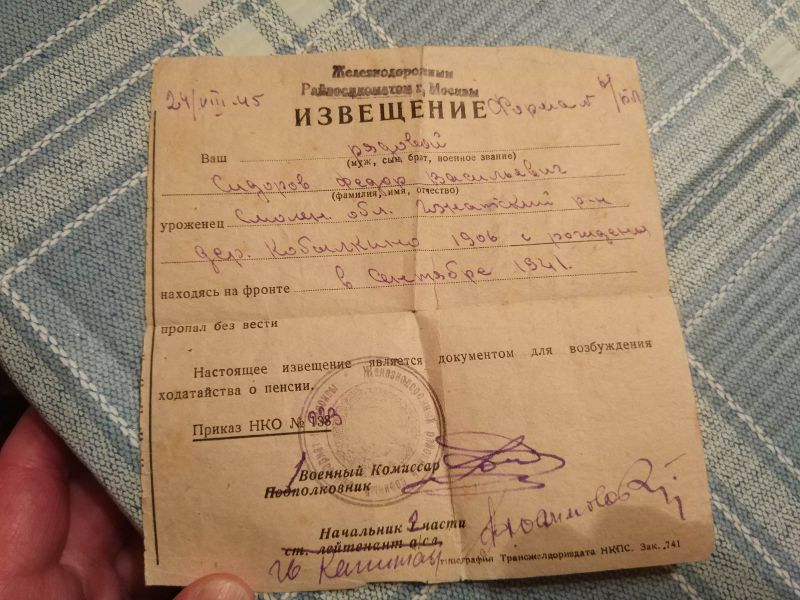 Железнодорожным
Райвоенкоматом г. Москвы
24/VIII 45
ИЗВЕЩЕНИЕ Форма №
Ваш рядовой
(муж, сын, брат, военное звание)
Сидоров Федор Васильевич
(фамилия, имя, отчество)
уроженец Смолен. обл. Гжатский р-н
дер. Кобылкино 1906 г рождения
находясь на фронте в Сентябре 1941.
пропал без вести
Настоящее извещение является документом для возбуждения
ходатайства о пенсии.
Приказ НКО № 138
Военный Комиссар
Подполковник
Начальник 2 части
ст. лейтенант а/сл.
Капитан
типография Трансжелдориздата НКПС. Зак. 741